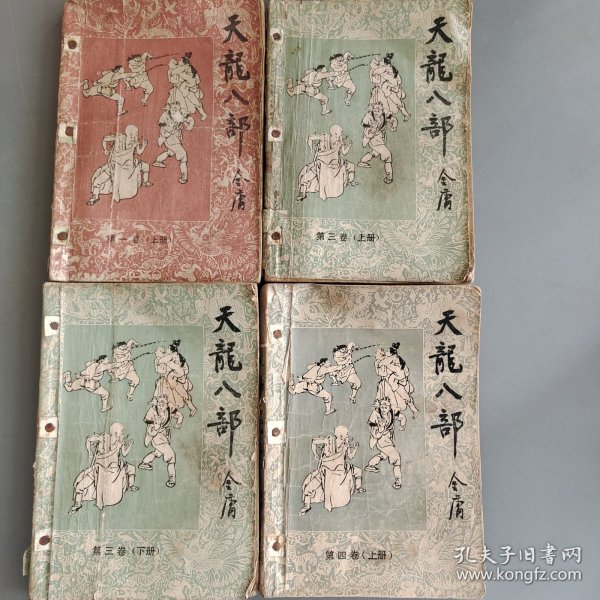 天龍八部
金庸
第一卷（上册）
天龍八部
金庸
第三卷（上册）
天龍八部
金庸
第三卷（下册）
天龍八部
金庸
第四卷（上册）
孔夫子旧书网
www.kongfz.com